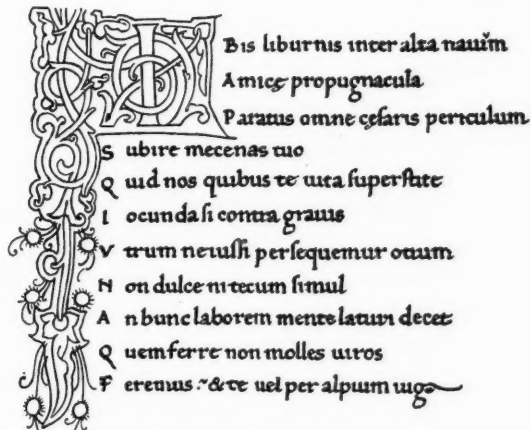 IBis liburnis inter alta nauĩm
Amicę propugnacula
Paratus omne cęsaris periculum
Subire mecenas tuo
Quid nos quibus te uita superstite
Iocunda si contra grauis
Vtrum ne iussi persequemur otium
Non dulce ni tecum simul
An hunc laborem mente laturi decet
Quem ferre non molles uiros
Feremus :~ & te uel per alpium iuga